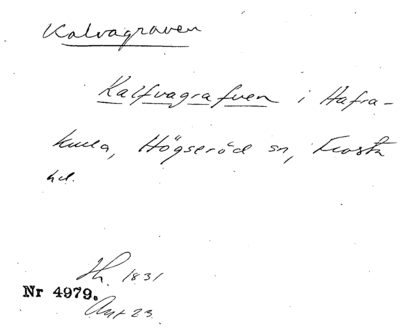 Kalvagraven
Kalfvagrafven i Hafra-
kulla, Högseröd sn, Frosta
hd.
Th. 1831
Nr 4979.
Ant 23